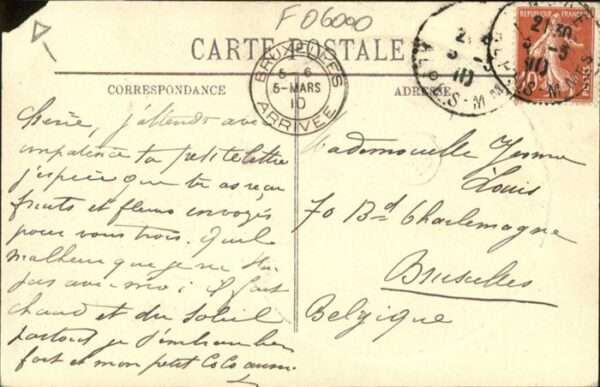 F 06000
CARTE POSTALE
CORRESPONDANCE
ADRESSE
BRUXELLES
5-MARS
10
ARRIVÉE
REPUBLIQUE FRANÇAISE
10
Chérie, j'attends avec
impatience ta petite lettre
j'espère que tu as reçu
fruits et fleurs envoyés
pour vous trois. Quel
malheur que je ne t'ai
pas avec moi; il fait
chaud et du soleil
partout je t'embrasse bien
fort et mon petit CoCo aussi.
Mademoiselle Yvonne
Louis
70 Bd Charlemagne
Bruxelles
Belgique